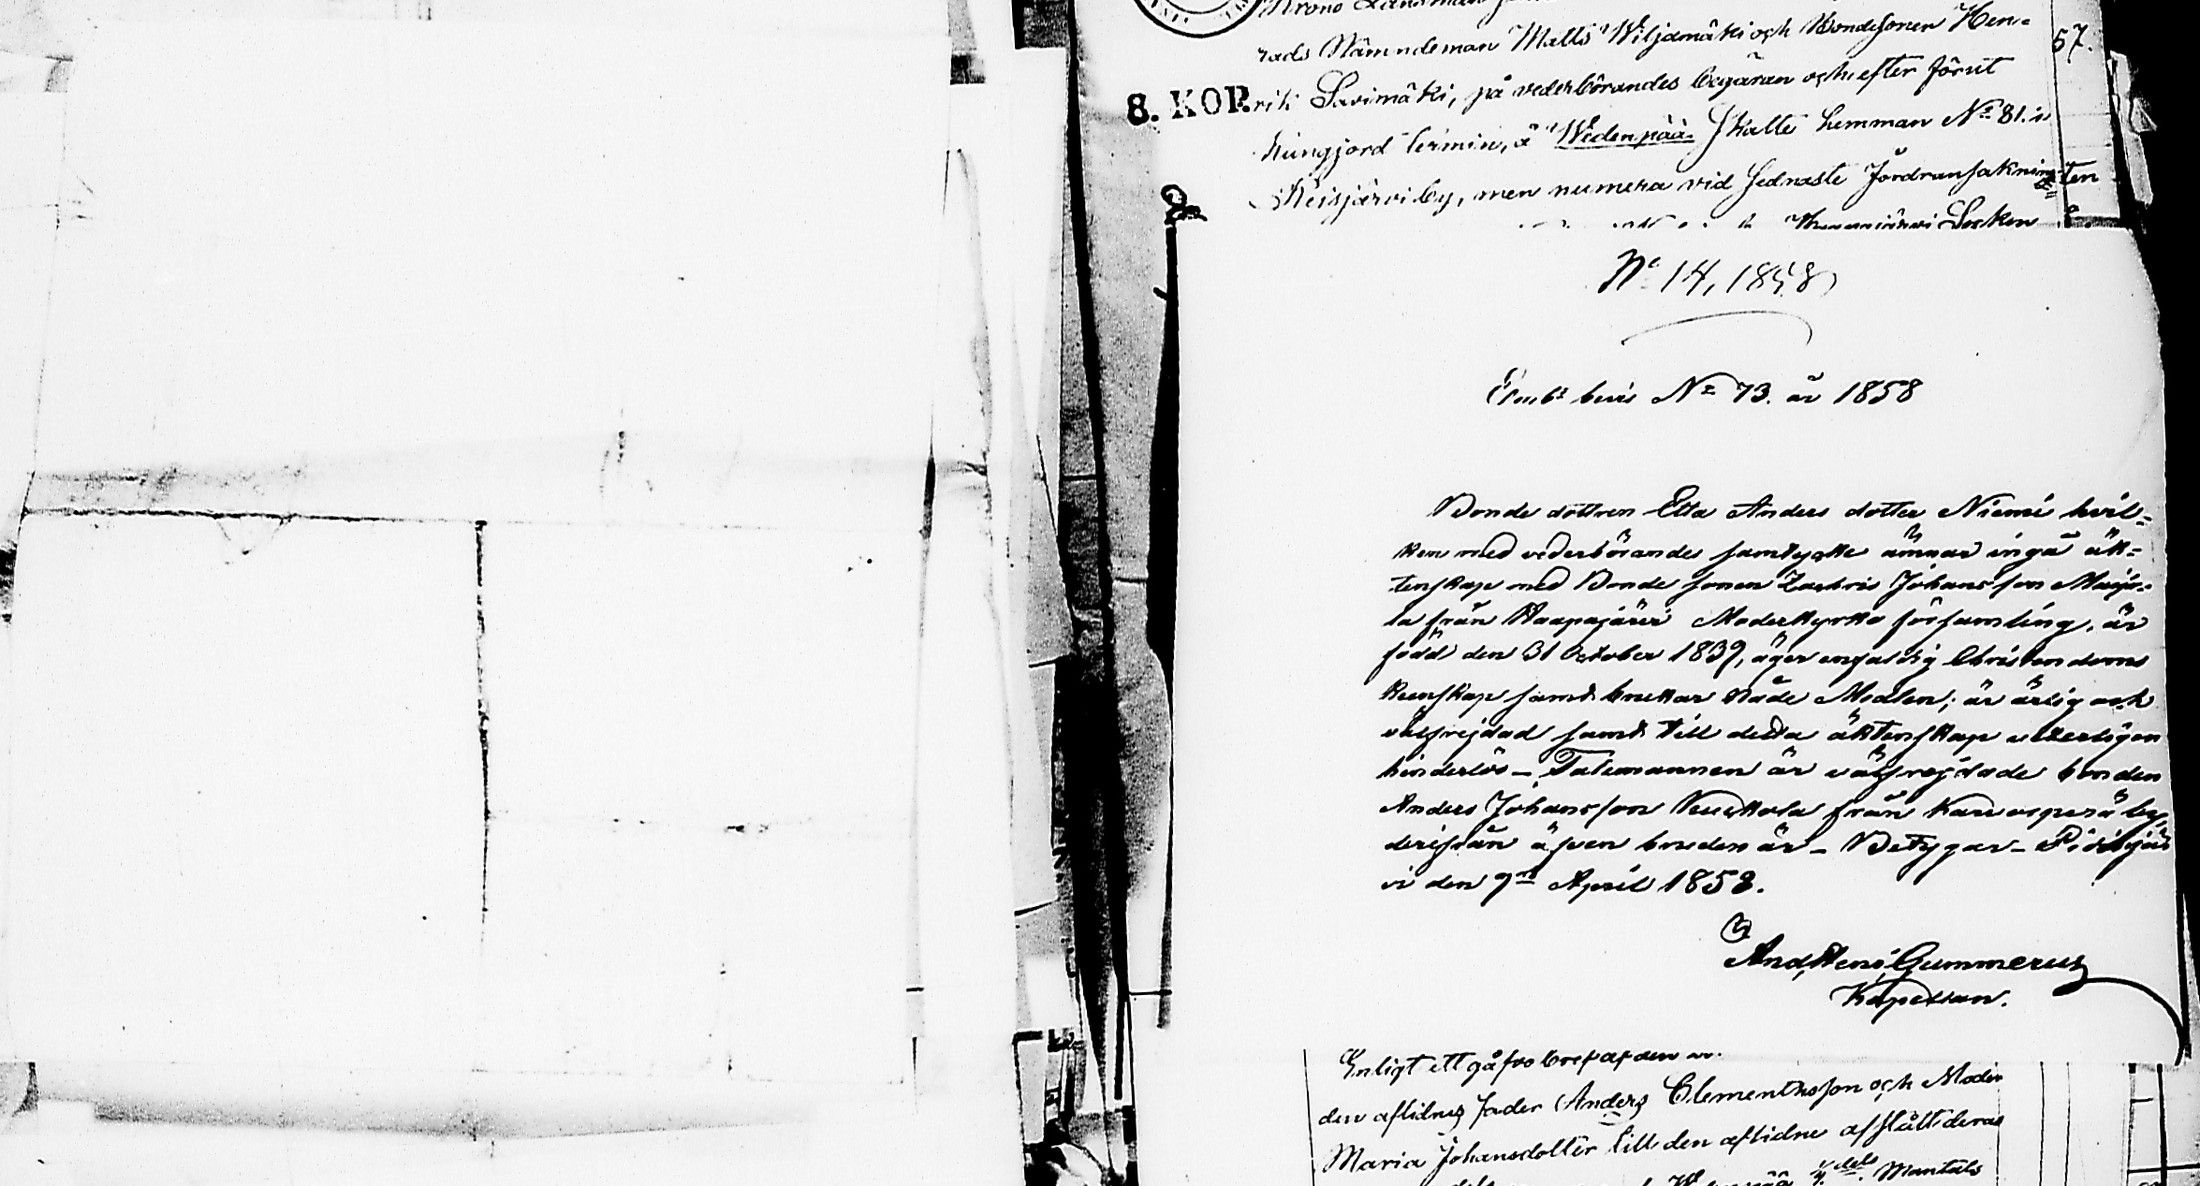 rads Nämndeman Matts Wiljamäki och Bondesonen Hen-
57.
8. KOP. rik Savimäki, på vederbörandes begäran och efter förut
kungjord termin, å Wedenpää Skatte hemman No 81. i
Reisjärvi by, men numera vid sednaste Jordransakning
ten
Socken
No 14, 1858
bevis No 73. år 1858
Bonde dottren Etta Anders dotter Niemi hvil-
ken med vederbörandes samtycke ämnar ingå äk-
tenskap med Bonde sonen Zachris Johansson Maija-
la från Haapajärvi Moderkyrko församling, är
född den 31 October 1839, äger enfaldig Christendoms
kunskap samt brukar Nåde Medlen; är ärlig och
välfrejdad samt till detta äktenskap veterligen
hinderlös – Talemannen är välfrejdade bonden
Anders Johansson från by,
derifrån äfven bruden är – Betygar – Pidisjär
vi den 9de April 1858.
And. Hen. Gummerus
Kapellan.
Enligt ett gåfvo bref af den
den aflidnes fader Anders Clementsson och Moder
Maria Johansdotter till den aflidne afstått deras
Mantals